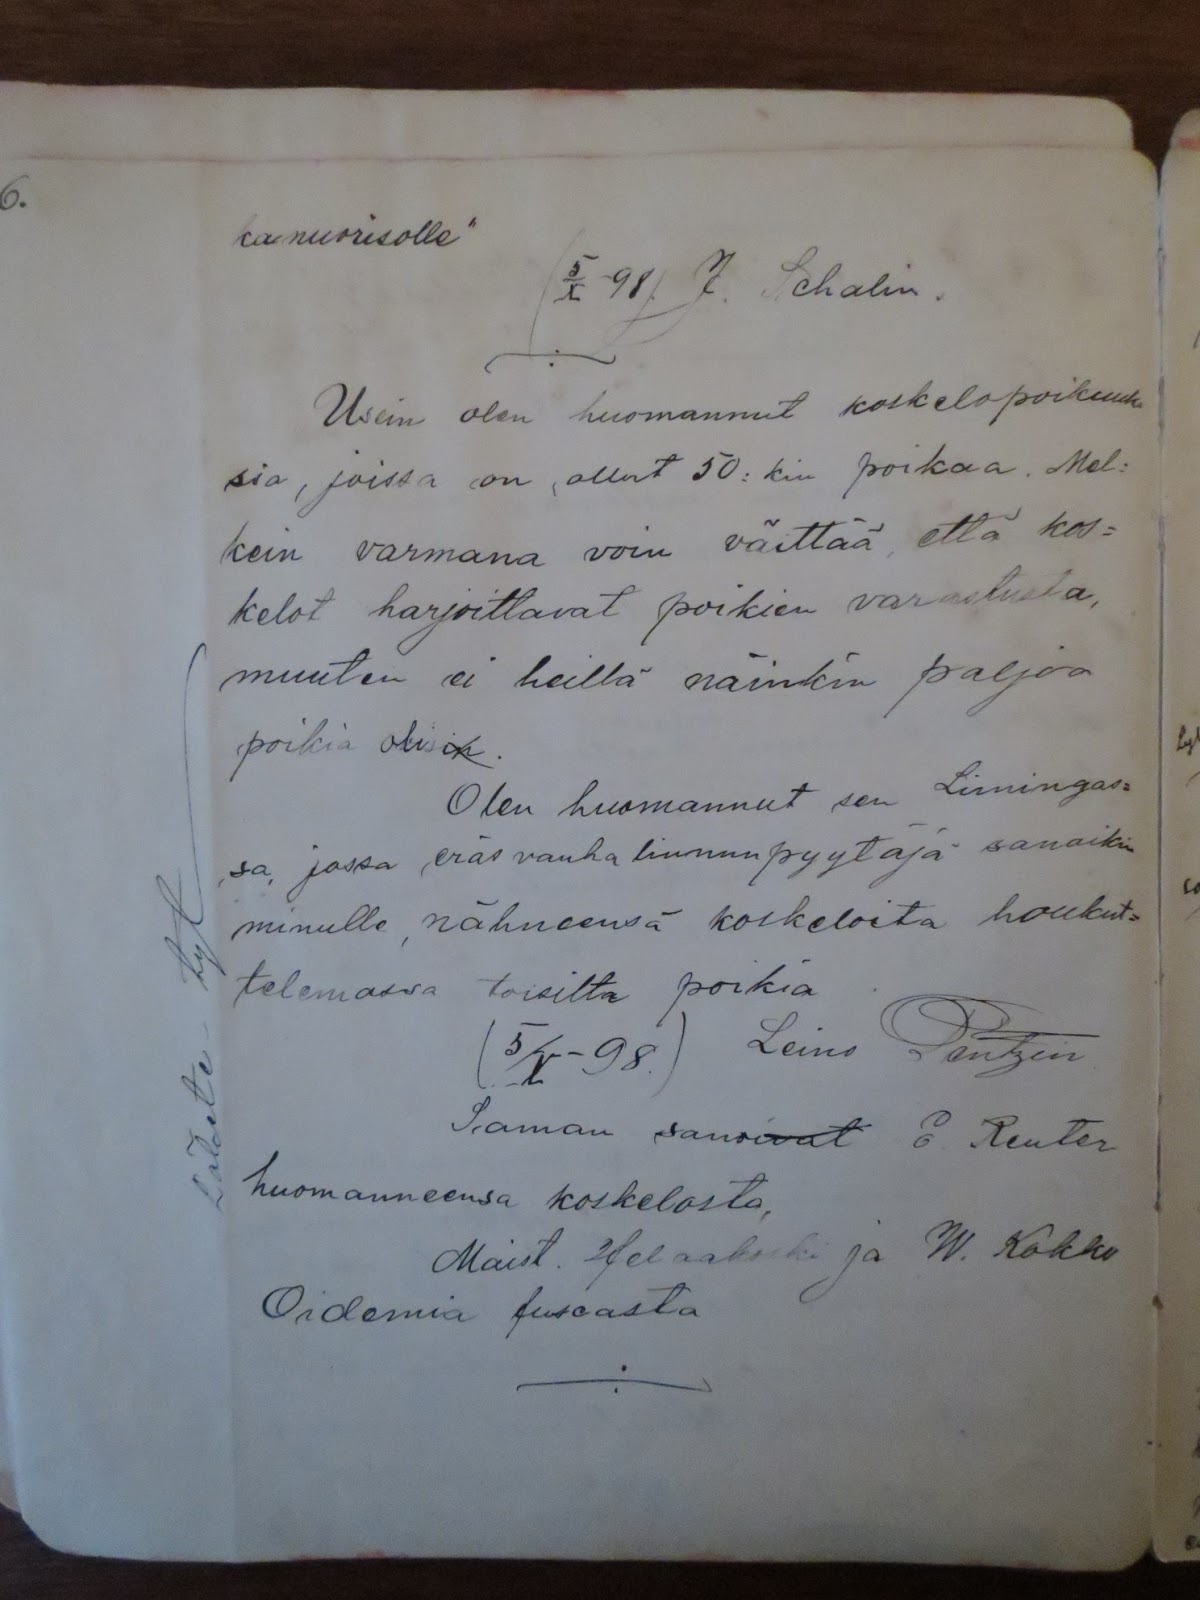 6.
kanuorisolle"
(5/X -98). J. Schalin.
Usein olen huomannut koskelopoikuuk-
sia, joissa on ollut 50:kin poikaa. Mel=
kein varmana voin väittää, että kos=
kelot harjoittavat poikien varastusta,
muuten ei heillä näinkin paljoa
poikia olisi.
Olen huomannut sen Limingas=
sa, jossa eräs vanha linnunpyytäjä sanoikin
minulle, nähneensä koskeloita houkut=
telemassa toisilta poikia
(5/X -98.) Leino Pentzin
Saman sanoivat E. Reuter
huomanneensa koskelosta,
Maist. Helaakoski ja W. Kokko
Oidemia fuscasta
Lähete-